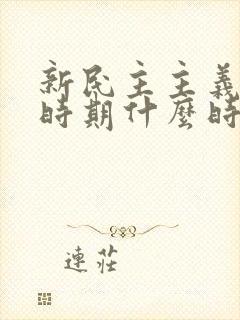 新民主主義
時期什麼時
連莊